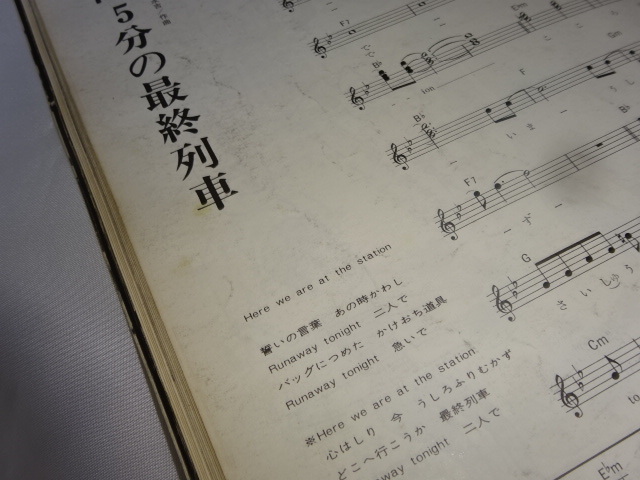 5分の最終列車
Here we are at the station
誓いの言葉 あの時かわし
Runaway tonight 二人で
バッグにつめた かけおち道具
Runaway tonight 急いで
※Here we are at the station
心はしり 今 うしろふりむかず
どこへ行こうか 最終列車
Runaway tonight 二人で
F7
Em
B♭
F
Gm
B♭
ー いまー
F7
B♭
ー ず ー
G
さ い しゅう
Cm
to
E♭m